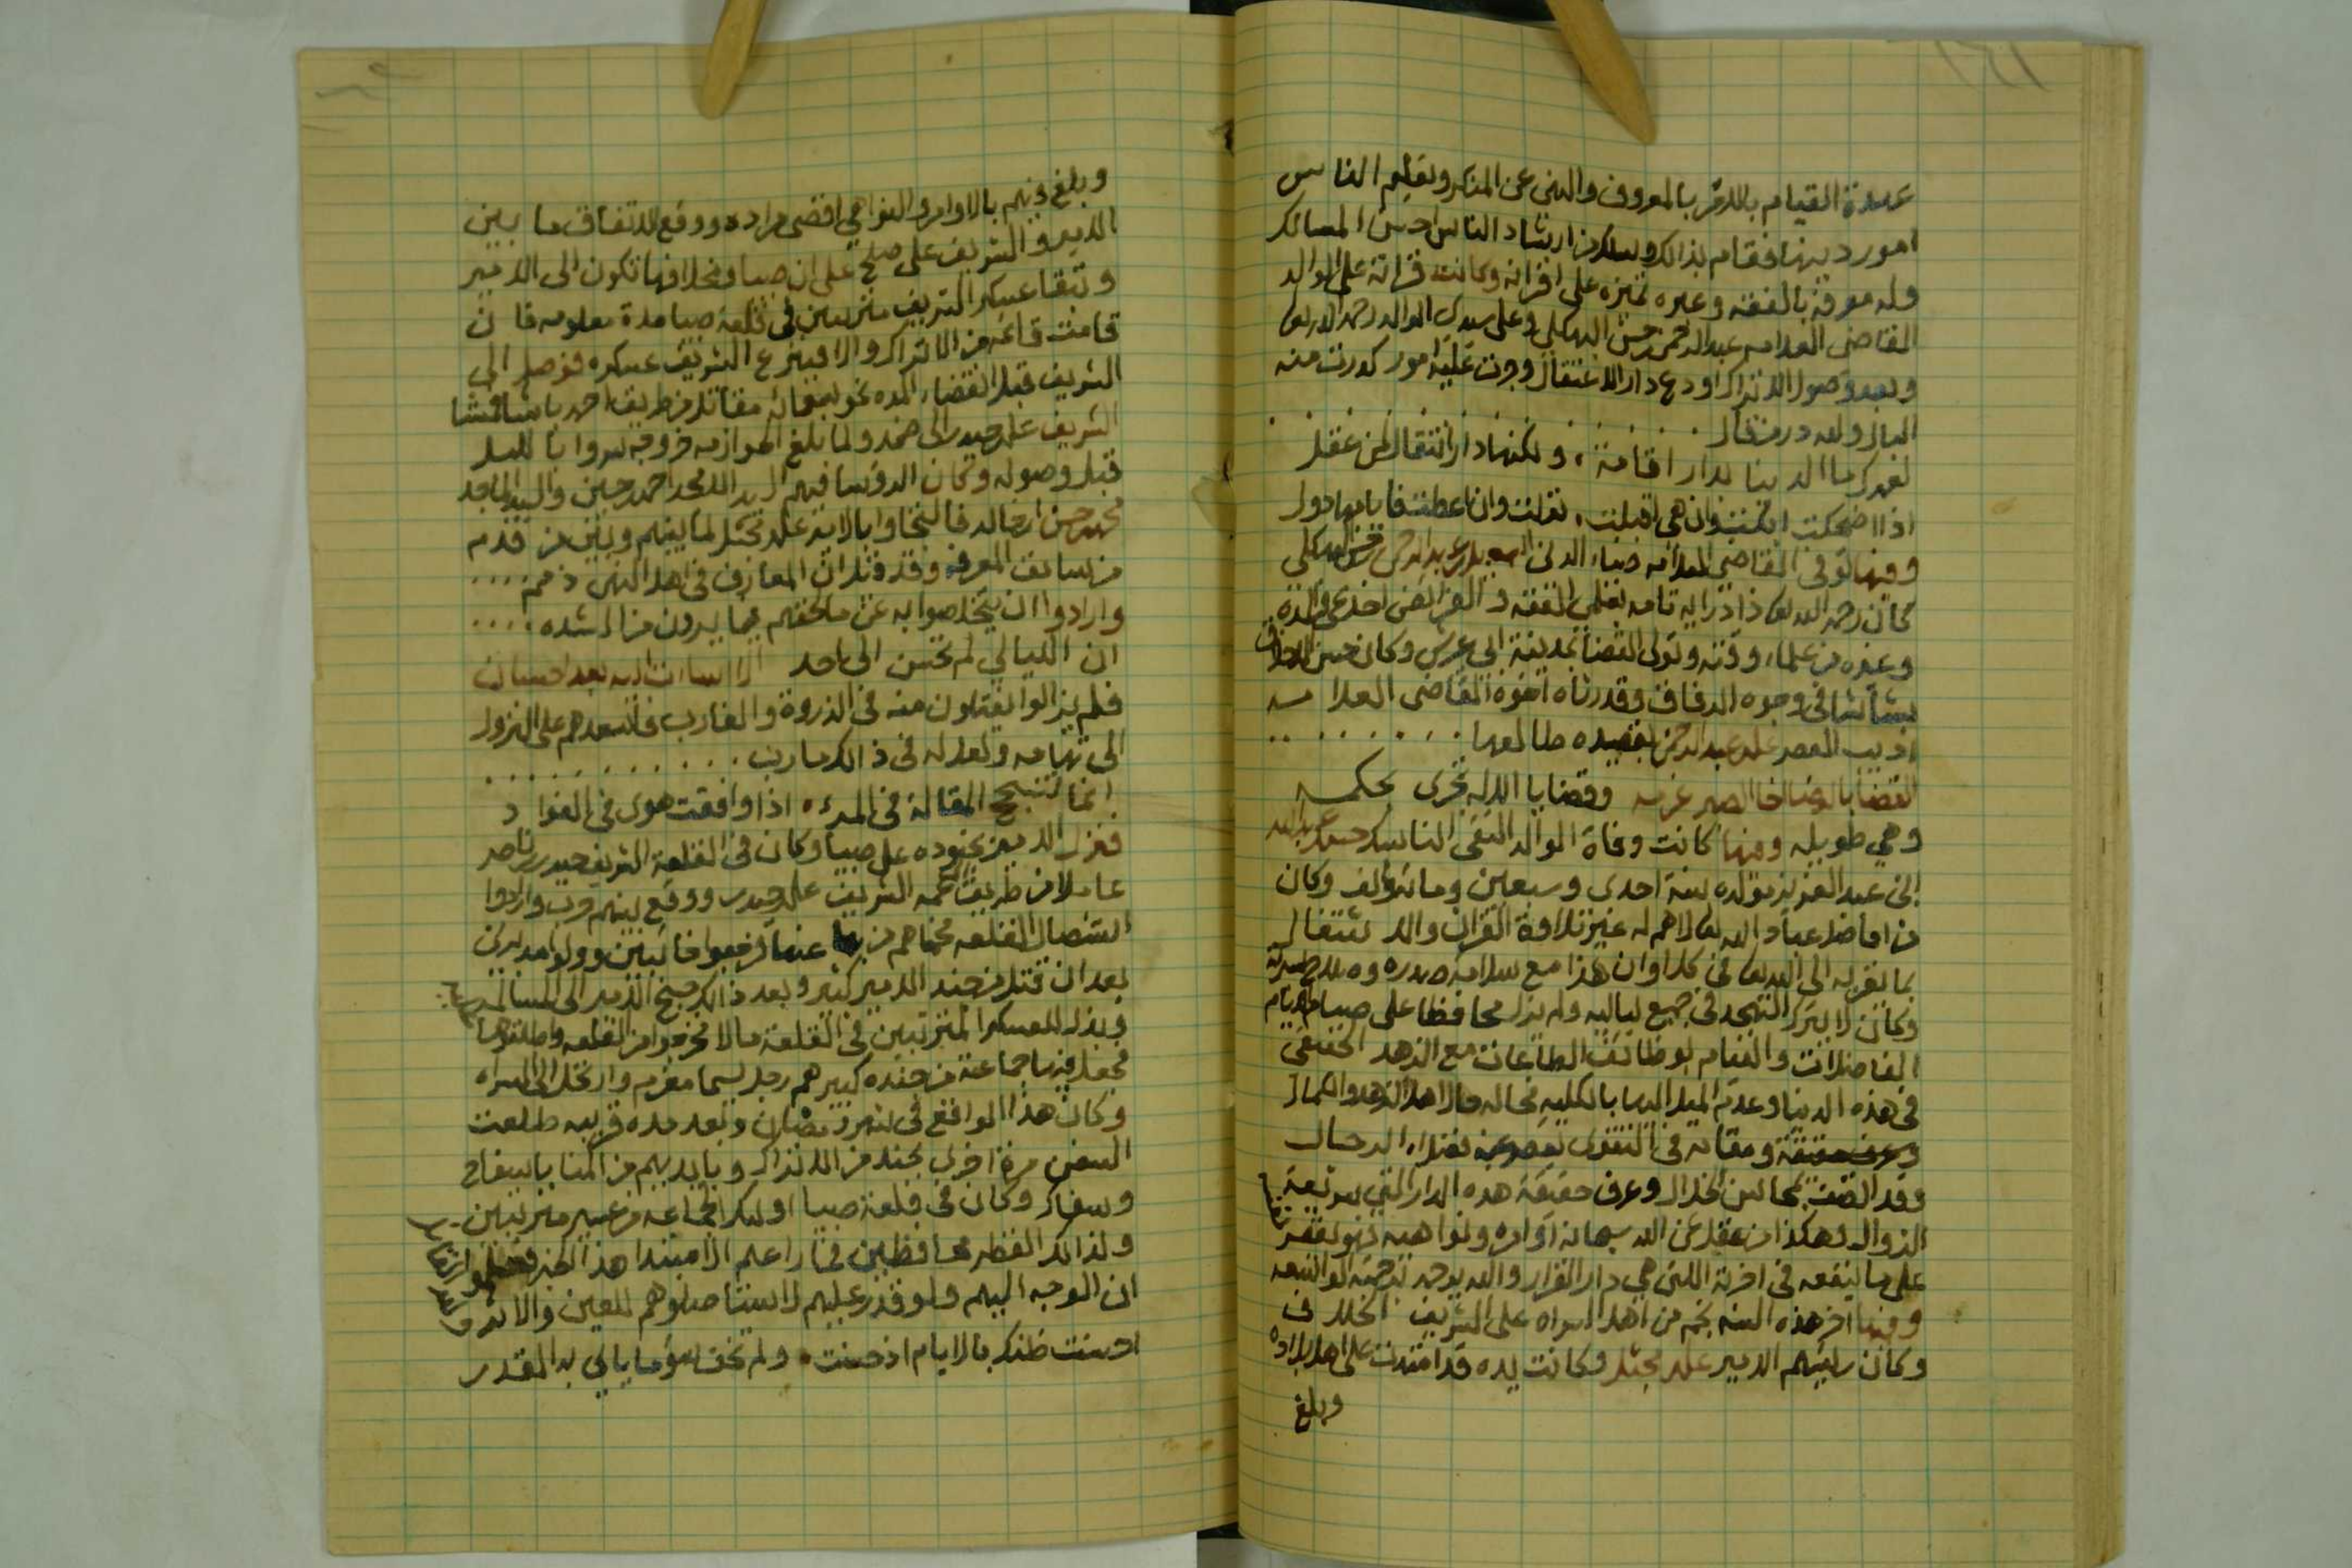 عهدة القيام بالامر بالمعروف والنهى عن المنكر وتعليم الناس
امور دينها فقام بذالك وسلك من ارشاد الناس احسن المسالك
وله معرفة بالفقه وغيره تميزه على اقرانه وكانت قراته على الوالد
القاضى العلامه عبدالرحمن بن حسن البهكلي وعلى سيدى الوالد رحمه الله تعالى
وبعد وصول الاتراك اودع دار الاعتقال وجرت عليه امور كدرت منه
البال ولله در من قال
لعمرك ما الدنيا بدار اقامة ، ولكنها دار انتقال لمن عقل
اذا اضحكت ابكت وان هي اقبلت ، تولت وان اعطت فايامها دول
وفيها توفى القاضى العلامه ضياء الدين اسمعيل بن عبدالرحمن بن حسن البهكلي
كان رحمه الله تعالى ذا دراية تامه بعلمى الفقه و الفرائض اخذ عن والده
وغيره من علماء وقته وتولى القضا بمدينة ابي عريش وكان حسن الاخلاق
بشاشا في وجوه الرفاق وقد رثاه اخوه القاضى العلامه
اديب العصر على بن عبدالرحمن بقصيده طالعها
القضايا وقضايا الاله تجرى بحكمه
وهي طويله ومنها كانت وفاة الوالد التقى الناسك حسن بن عبدالله
ابن عبد العزيز مولده سنة احدى وسبعين ومائة والف وكان
من افاضل عباد الله تعالى لا هم له غير تلاوة القران والاشتغال
بما يقربه الى الله تعالى في كل اوان هذا مع سلامة صدره وصلاح سريرته
وكان لا يترك التهجد في جميع لياليه ولم يزل محافظا على صيام الايام
الفاضلات والقيام بوظائف الطاعات مع الزهد الحقيقى
في هذه الدنيا وعدم الميل اليها بالكليه فحاله حال اهل الزهد والكمال
ومقامه في التقوى يقصر عنه فضلاء الرجال
وقد اتصف بمحاسن الخلال وعرف حقيقة هذه الدار التي سريعة
الزوال وهكذا من عقل عن الله سبحانه اوامره ونواهيه فهو يقتصر
على ما ينفعه في اخرته اللتى هي دار القرار والله يرحمه برحمته الواسعه
وفيها اخر هذه السنه نجم من اهل السراه على الشريف الخلاف
وكان رئيسهم الامير على بن مجثل وكانت يده قد امتدت على اهل بلاده
وبلغ
وبلغ فيهم بالاوامر والنواهي اقصى مراده ووقع الاتفاق ما بين
الامير والشريف على صلح على ان صبيا ومخلافها تكون الى الامير
وتبقا عسكر الشريف مترتبين في قلعة صبيا مدة معلومه فان
قامت قائمه من الاتراك والا فيرفع الشريف عسكره فوصل الى
الشريف قبل انقضاء المده نحو سبعمائة مقاتل من طريق احمد باشا فمشا
الشريف على بن حيدر الى ضمد ولما بلغ الحوازمه خروجه سروا بالليل
قبل وصوله وكان الرؤسا فيهم محمد بن احمد بن حسين والسيد الماجد
محمد بن حسن بن خالد فالتجاوا بالامير على بن مجثل لما بينهم وبين من قدم
من سابق المعرفه وقد قيل ان المعارف في اهل النهى ذمم
وارادوا ان يتخلصوا به عن ما لحقهم مما يرون من الشده
ان الليالي لم تحسن الى احد الا اساءت اليه بعد احسان
فلم يزالوا يفتلون منه في الذروة والغارب فاسعدهم على النزول
الى تهامه ولعل له في ذالك مارب
انما تنجح المقالة في المرء ، اذا وافقت هوى في الفواد
فنزل الامير بجنوده على صبيا وكان في القلعة الشريف حيدر بن ناصر
عاملا من طريق عمه الشريف على بن حيدر ووقع بينهم حرب وارادوا
استئصال القلعه فحماهم من بها عنها فرجعوا خائبين وولوا مدبرين
بعد ان قتل من جند الامير كثير وبعد ذالك جنح الامير الى المسالمه
وبذل للعسكر المترتبين في القلعة مالا فخرجوا من القلعه واطلقوها
فجعل فيها جماعة من جنده كبيرهم رجل يسما مغرم وارتحل الى السراه
وكان هذا الواقع في شهر رمضان وبعد مده قريبه طلعت
السفن مرة اخرى بجند من الاتراك وبايديهم من القنا
وكان في قلعة صبيا اولئك الجماعه من عسير مترتبين
ولذالك القطر محافظين
ان الوجه اليهم ولو قدر عليهم لاستاصلوهم
احسنت ظنك بالايام اذ حسنت ، ولم تخف سؤ ما ياتي به القدر